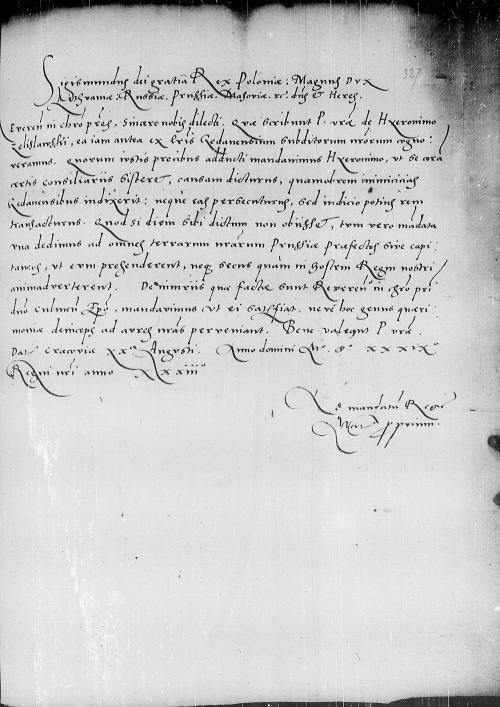 327
Sigismundus dei gratia Rex Poloniæ: Magnus Dux
Lithvaniæ: Russiæ, Prussiæ, Masoviæ. etc. dns & Heres.
in chro prēs, sincære nobis dilecti. Quæ scribunt P. vræ de Hieronimo
ea iam antea ex Gedanensium subditorum nrorum cogno:
veramus. quorum iustis precibus adducti mandavimus Hieronimo, ut se corā
certis consiliariis sisteret, causam dicturus, quamobrem inimicitias
Gedanensibus indixerit: neque eas persecuturus, sed iudicio potius rem
transacturus. Quod si diem sibi dictum non obiisset, tum vero mādata
una dedimus ad omnes terrarum nrarum Prussiæ præfectos sive capi:
taneos, ut eum præhenderent, neq secus quàm in hostem Regni nostri
animadverterent. De iniuriis quæ factæ sunt in chro pri
dno Culmeñ Epo, mandavimus ut ei satisfiat. neve hoc genus queri:
moniæ deinceps ad aures nras perveniant. Bene valeant P. vræ
Dat Cracoviæ xxa Augusti. Anno domini Mo. Do xxxixo
Regni nri anno xxxiiio
Ad mandatū
pprium.